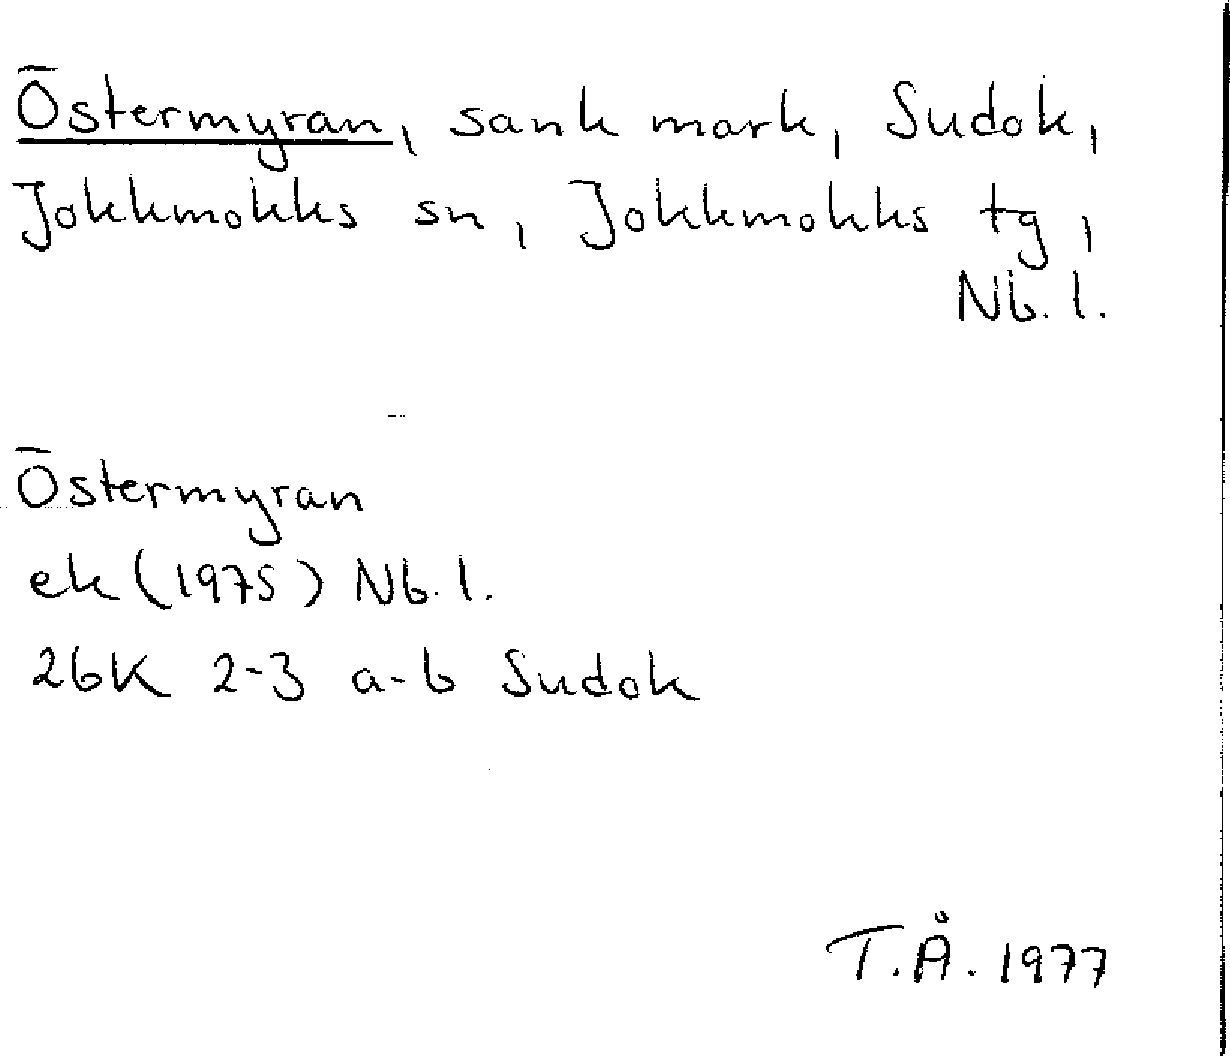 Östermyran, sank mark, Sudok,
Jokkmokks sn, Jokkmokks tg,
Nb. l.
Östermyran
ek (1975) Nb. l.
26K 2-3 a-b Sudok
T.Å. 1977